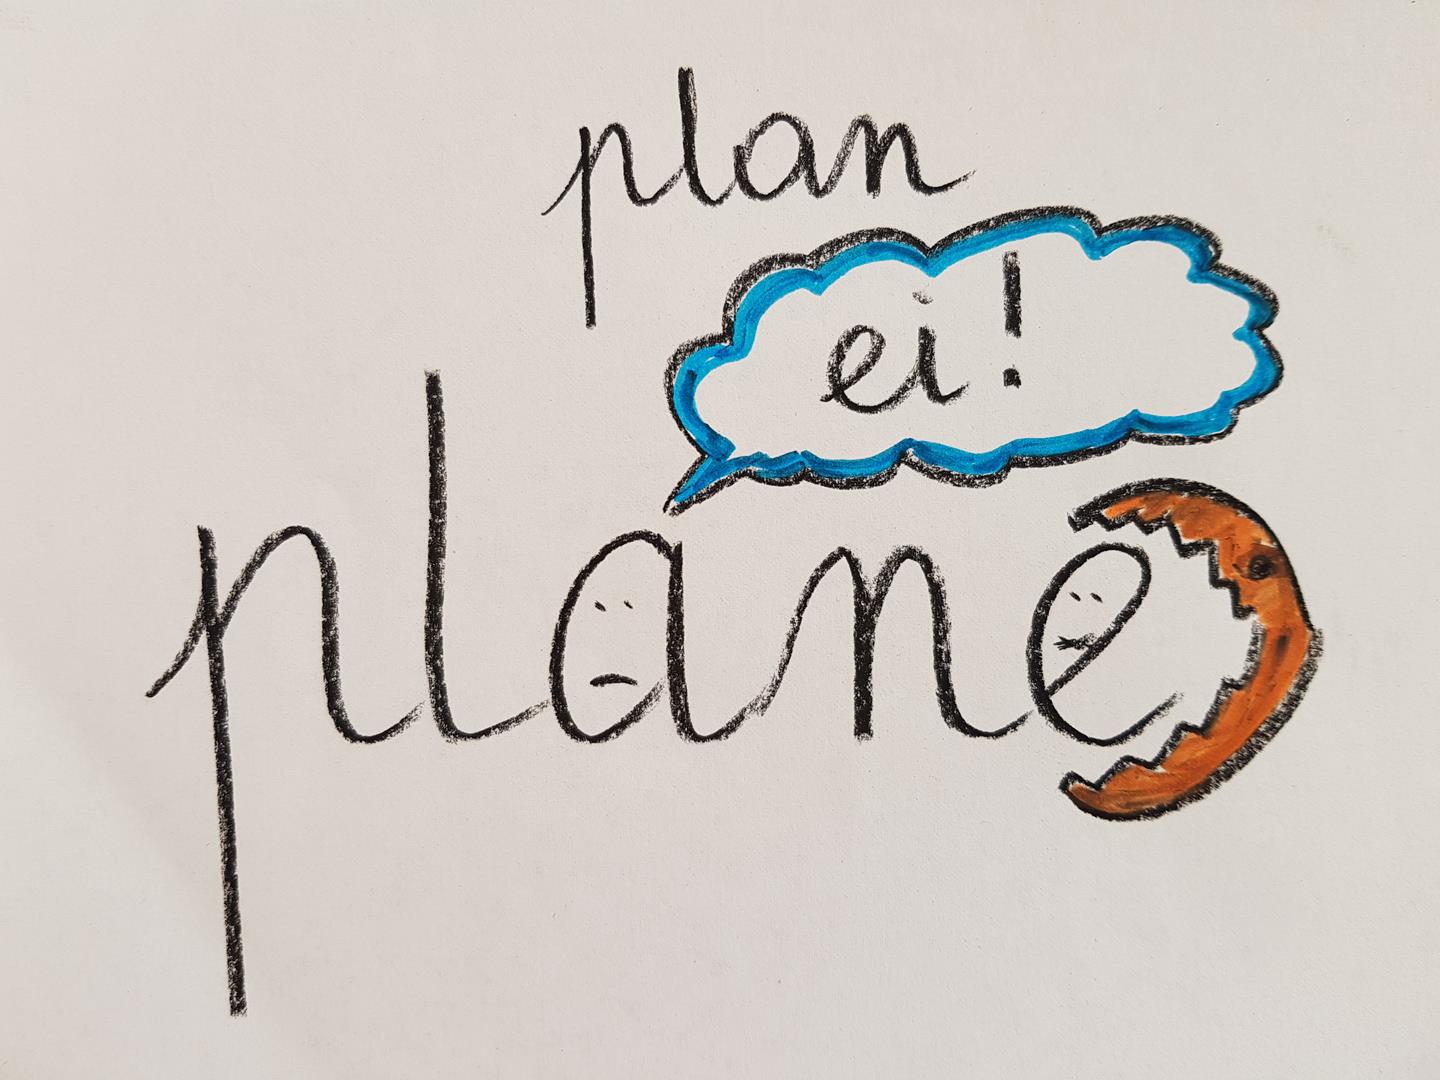 plan
ei!
plane